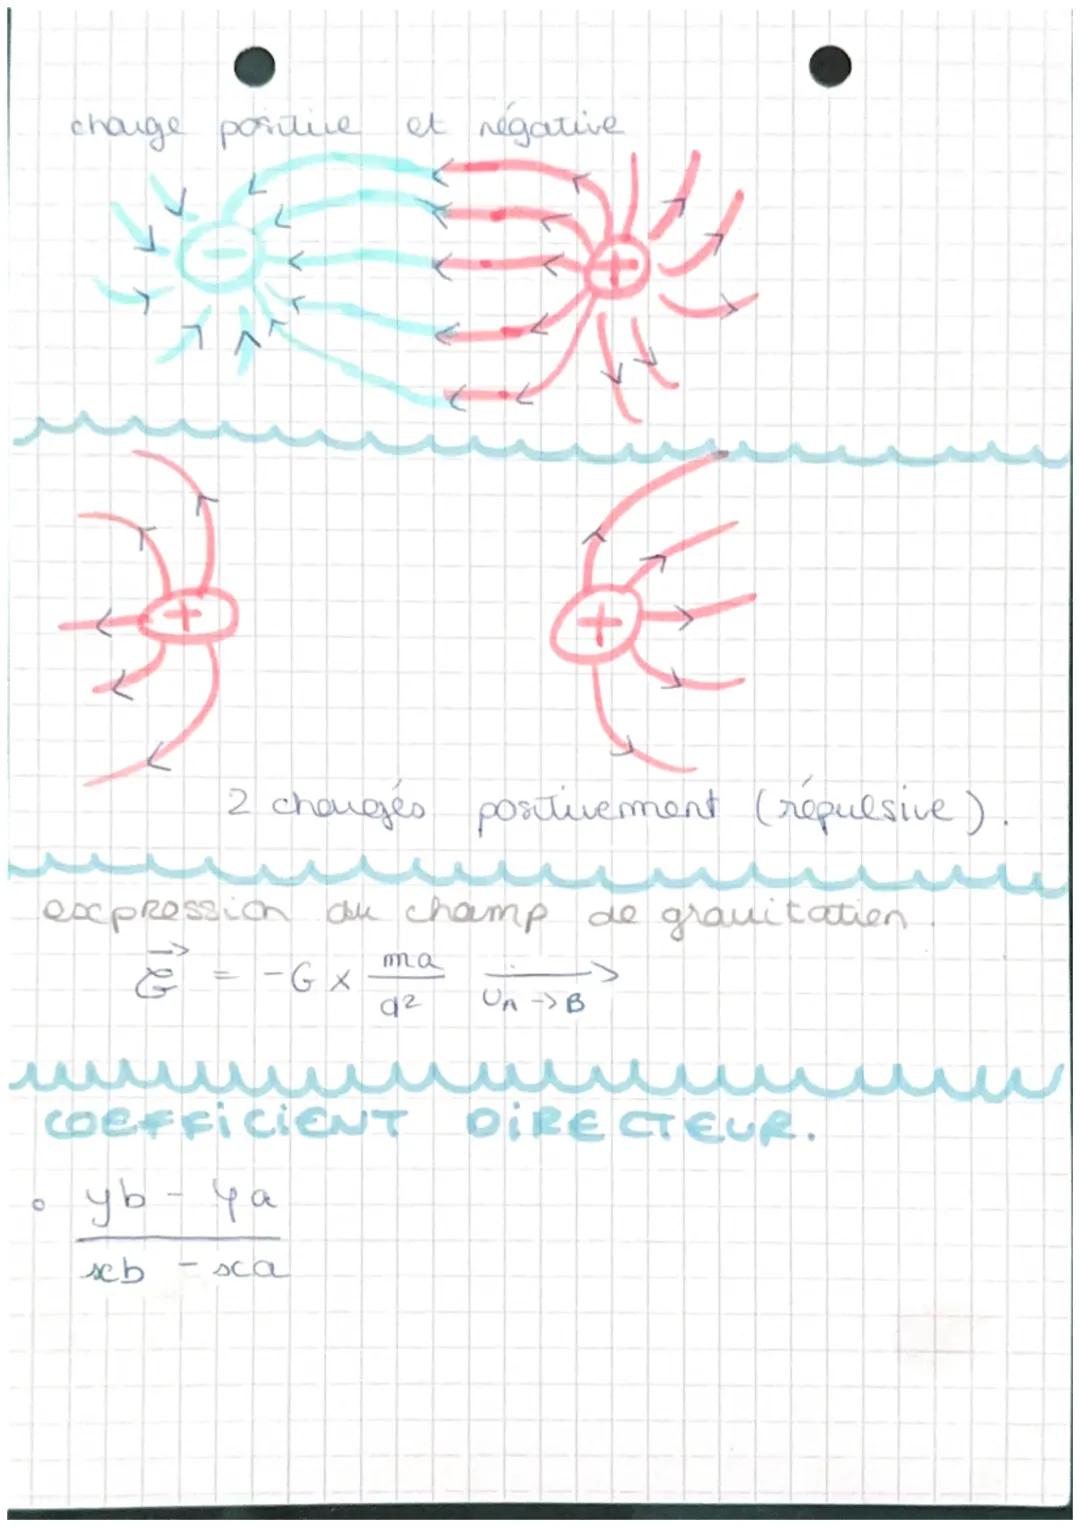 charge positive et négative
−
+
+
+
2 chargés positivement (répulsive).
expression du champ de gravitation.
G⃗ = -G x ma/d² U A -> B
COEFFICIENT DIRECTEUR.
yb - ya
xb - xa